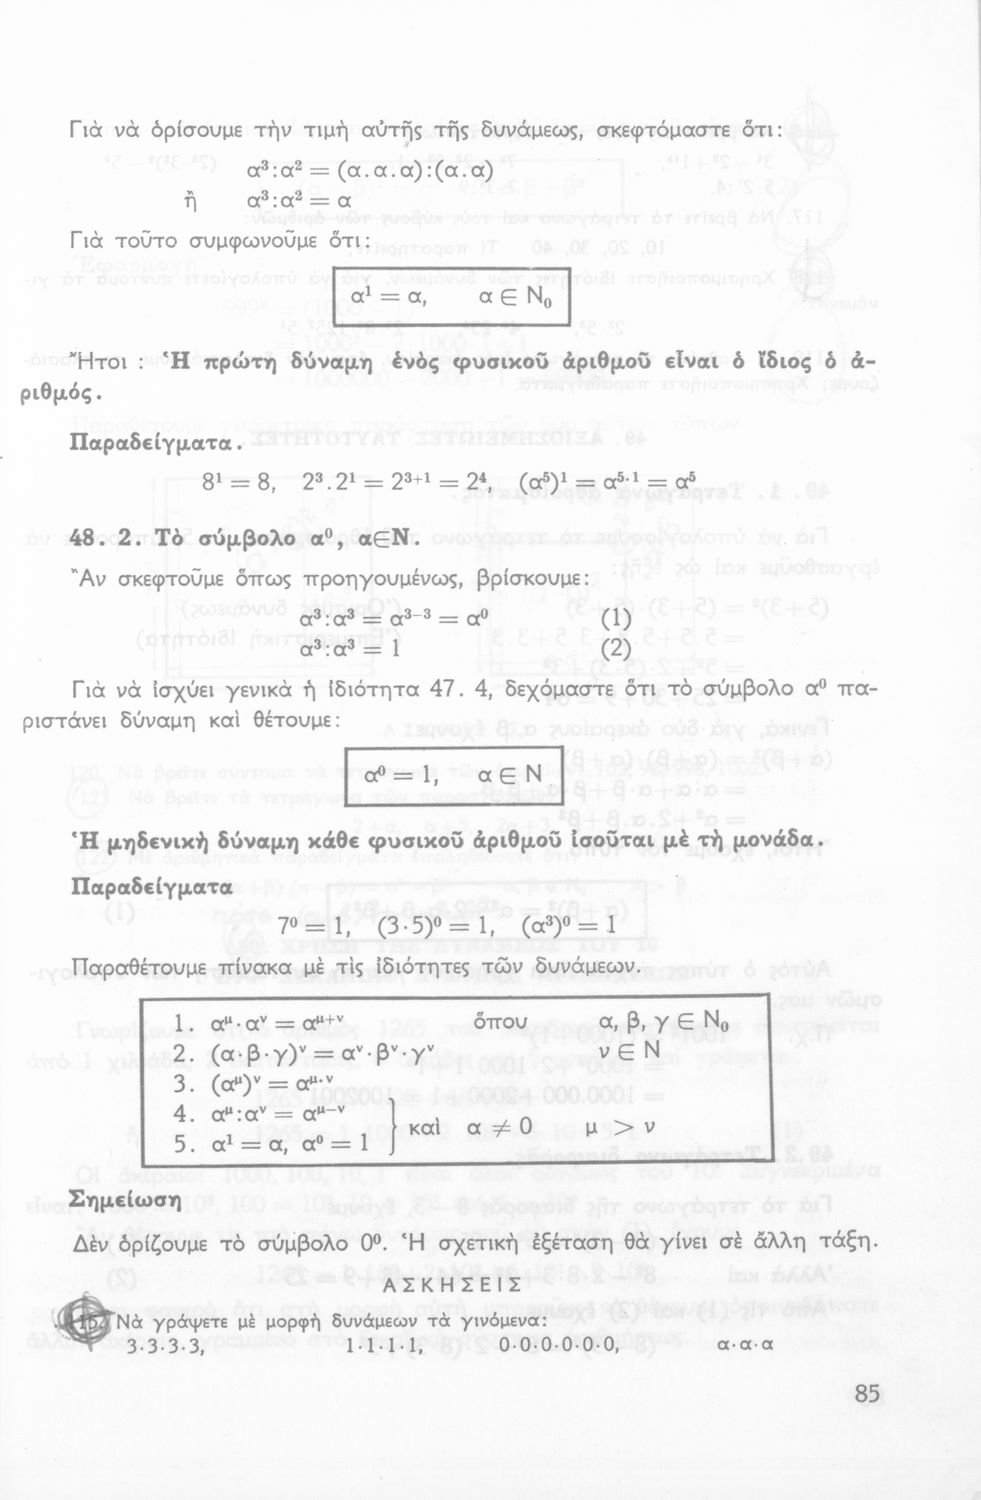 Γιὰ νὰ ὁρίσουμε τὴν τιμὴ αὐτῆς τῆς δυνάμεως, σκεφτόμαστε ὅτι:
α³:α² = (α.α.α):(α.α)
ἢ α³:α² = α
Γιὰ τοῦτο συμφωνοῦμε ὅτι:
α¹ = α, α ∈ N₀
Ἤτοι : Ἡ πρώτη δύναμη ἑνὸς φυσικοῦ ἀριθμοῦ εἶναι ὁ ἴδιος ὁ ἀ-
ριθμός.
Παραδείγματα.
8¹ = 8, 2³.2¹ = 2³⁺¹ = 2⁴, (α⁵)¹ = α⁵·¹ = α⁵
48. 2. Τὸ σύμβολο α⁰, α∈N.
Ἂν σκεφτοῦμε ὅπως προηγουμένως, βρίσκουμε:
α³:α³ = α³⁻³ = α⁰ (1)
α³:α³ = 1 (2)
Γιὰ νὰ ἰσχύει γενικὰ ἡ ἰδιότητα 47. 4, δεχόμαστε ὅτι τὸ σύμβολο α⁰ πα-
ριστάνει δύναμη καὶ θέτουμε:
α⁰ = 1, α ∈ N
Ἡ μηδενικὴ δύναμη κάθε φυσικοῦ ἀριθμοῦ ἰσοῦται μὲ τὴ μονάδα.
Παραδείγματα
7⁰ = 1, (3·5)⁰ = 1, (α³)⁰ = 1
Παραθέτουμε πίνακα μὲ τὶς ἰδιότητες τῶν δυνάμεων.
1. α^μ·α^ν = α^μ+ν ὅπου α, β, γ ∈ N₀
2. (α·β·γ)^ν = α^ν·β^ν·γ^ν ν ∈ N
3. (α^μ)^ν = α^μ·ν
4. α^μ:α^ν = α^μ−ν
καὶ α ≠ 0 μ > ν
5. α¹ = α, α⁰ = 1
Σημείωση
Δὲν ὁρίζουμε τὸ σύμβολο 0⁰. Ἡ σχετικὴ ἐξέταση θὰ γίνει σὲ ἄλλη τάξη.
ΑΣΚΗΣΕΙΣ
115. Νὰ γράψετε μὲ μορφὴ δυνάμεων τὰ γινόμενα:
3·3·3·3, 1·1·1·1, 0·0·0·0·0·0, α·α·α
85